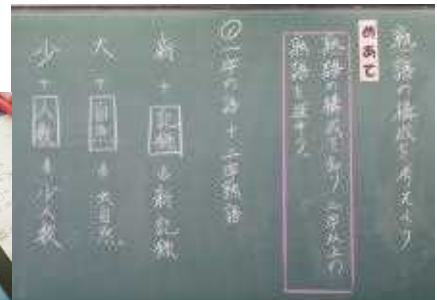 熟語の構成を考えよう
めあて
熟語の構成を知り、三字以上の
熟語を話そう。
①一字の語+二字熟語
新+記録⇒新記録
大+自然⇒大自然
少+人数⇒少人数